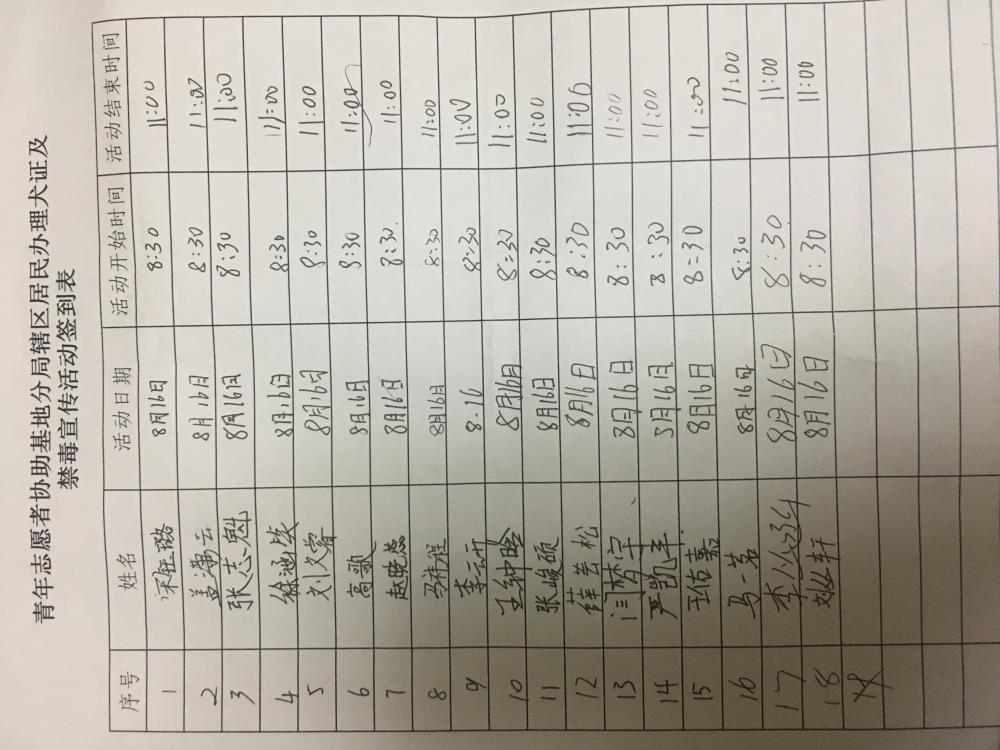 青年志愿者协助基地分局辖区居民办理犬证及
禁毒宣传活动签到表
序号 姓名 活动日期 活动开始时间 活动结束时间
1 8月16日 8:30 11:00
2 8月16日 8:30 11:00
3 张志魁 8月16日 8:30 11:00
4 8月16日 8:30 11:00
5 刘文睿 8月16日 8:30 11:00
6 高歌 8月16日 8:30 11:00
7 赵晓蕊 8月16日 8:30 11:00
8 8月16日 8:30 11:00
9 8.16 8:30 11:00
10 王钟晗 8月16日 8:30 11:00
11 张峻硕 8月16日 8:30 11:00
12 薛芸松 8月16日 8:30 11:00
13 8月16日 8:30 11:00
14 严凯丰 8月16日 8:30 11:00
15 王佑嘉 8月16日 8:30 11:00
16 马一茗 8月16日 8:30 11:00
17 8月16日 8:30 11:00
18 8月16日 8:30 11:00